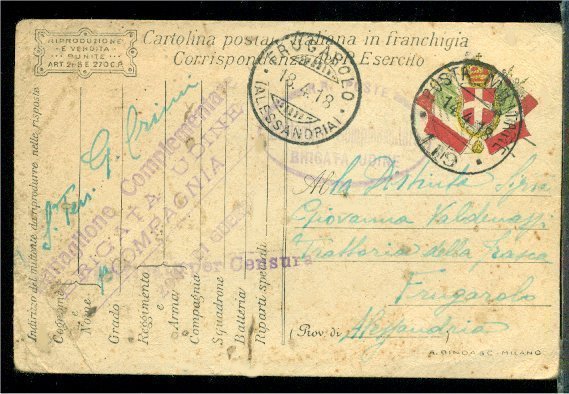 RIPRODUZIONE
E VENDITA
PUNITE
ART. 2 S E 270 C.P.
Cartolina postale italiana in franchigia
Corrispondenza del R. Esercito
FRUGAROLO
18. 4. 18
(ALESSANDRIA)
POSTA MILITARE
4. 18
Indirizzo del mittente da riprodurre nelle risposte
S. Ten. G.
Battaglione Complementare
BRIGATA UDINE
COMPAGNIA
BRIGATA UDINE
Cognome e Nome
Grado
Reggimento e Arma
Compagnia
Squadrone
Batteria
Riparti speciali
per Censura
Alla Distinta Sigra
Giovanna
Trattoria della
Frugarolo
(Prov. di
Alessandria
A. RINO & C. - MILANO